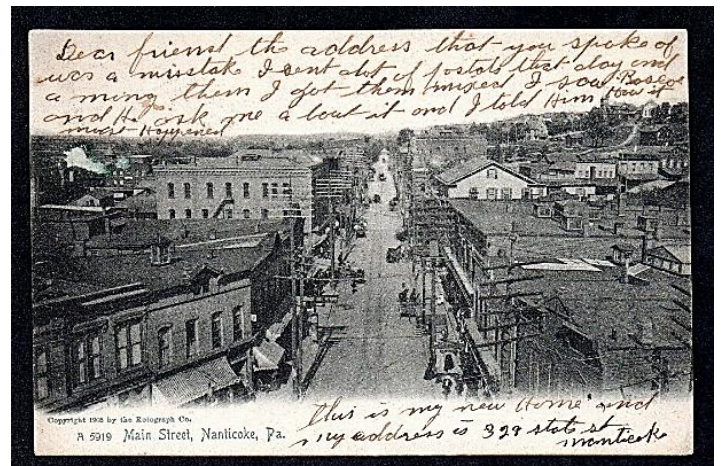 Dear friend the address that you spoke of
was a misstak I sent alot of postals that day and
a ming them I got them mixed I saw Roscoe
and He ask me a bout it and I told Him How it
must Happened
Copyright 1905 by the Rotograph Co.
A 5919 Main Street, Nanticoke, Pa.
this is my new Home and
my address is 329 state st
nanticok